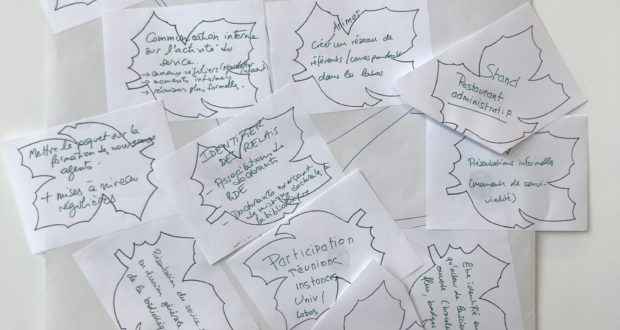 Communication interne
sur l'activité du
service.
→ canaux réguliers (
→ moments informels
→ réunions plus formelles.
Animer
Créer un réseau de
référents/correspondants
dans les labos
Stand
Restaurant
administratif
Mettre le paquet sur la
formation de nouveaux
agents.
+ mises à niveau
régulières
IDENTIFIER
DES RELAIS
- Associations de
doctorants
BDE
- Doctorants exerçant
la bibliothèque
Présentations informelles
(moments de convi-
vialité)
Présentation du service
en réunion générale
de la bibliothèque
Participation
réunions
instances
Univ/
Labos
Etre identifié